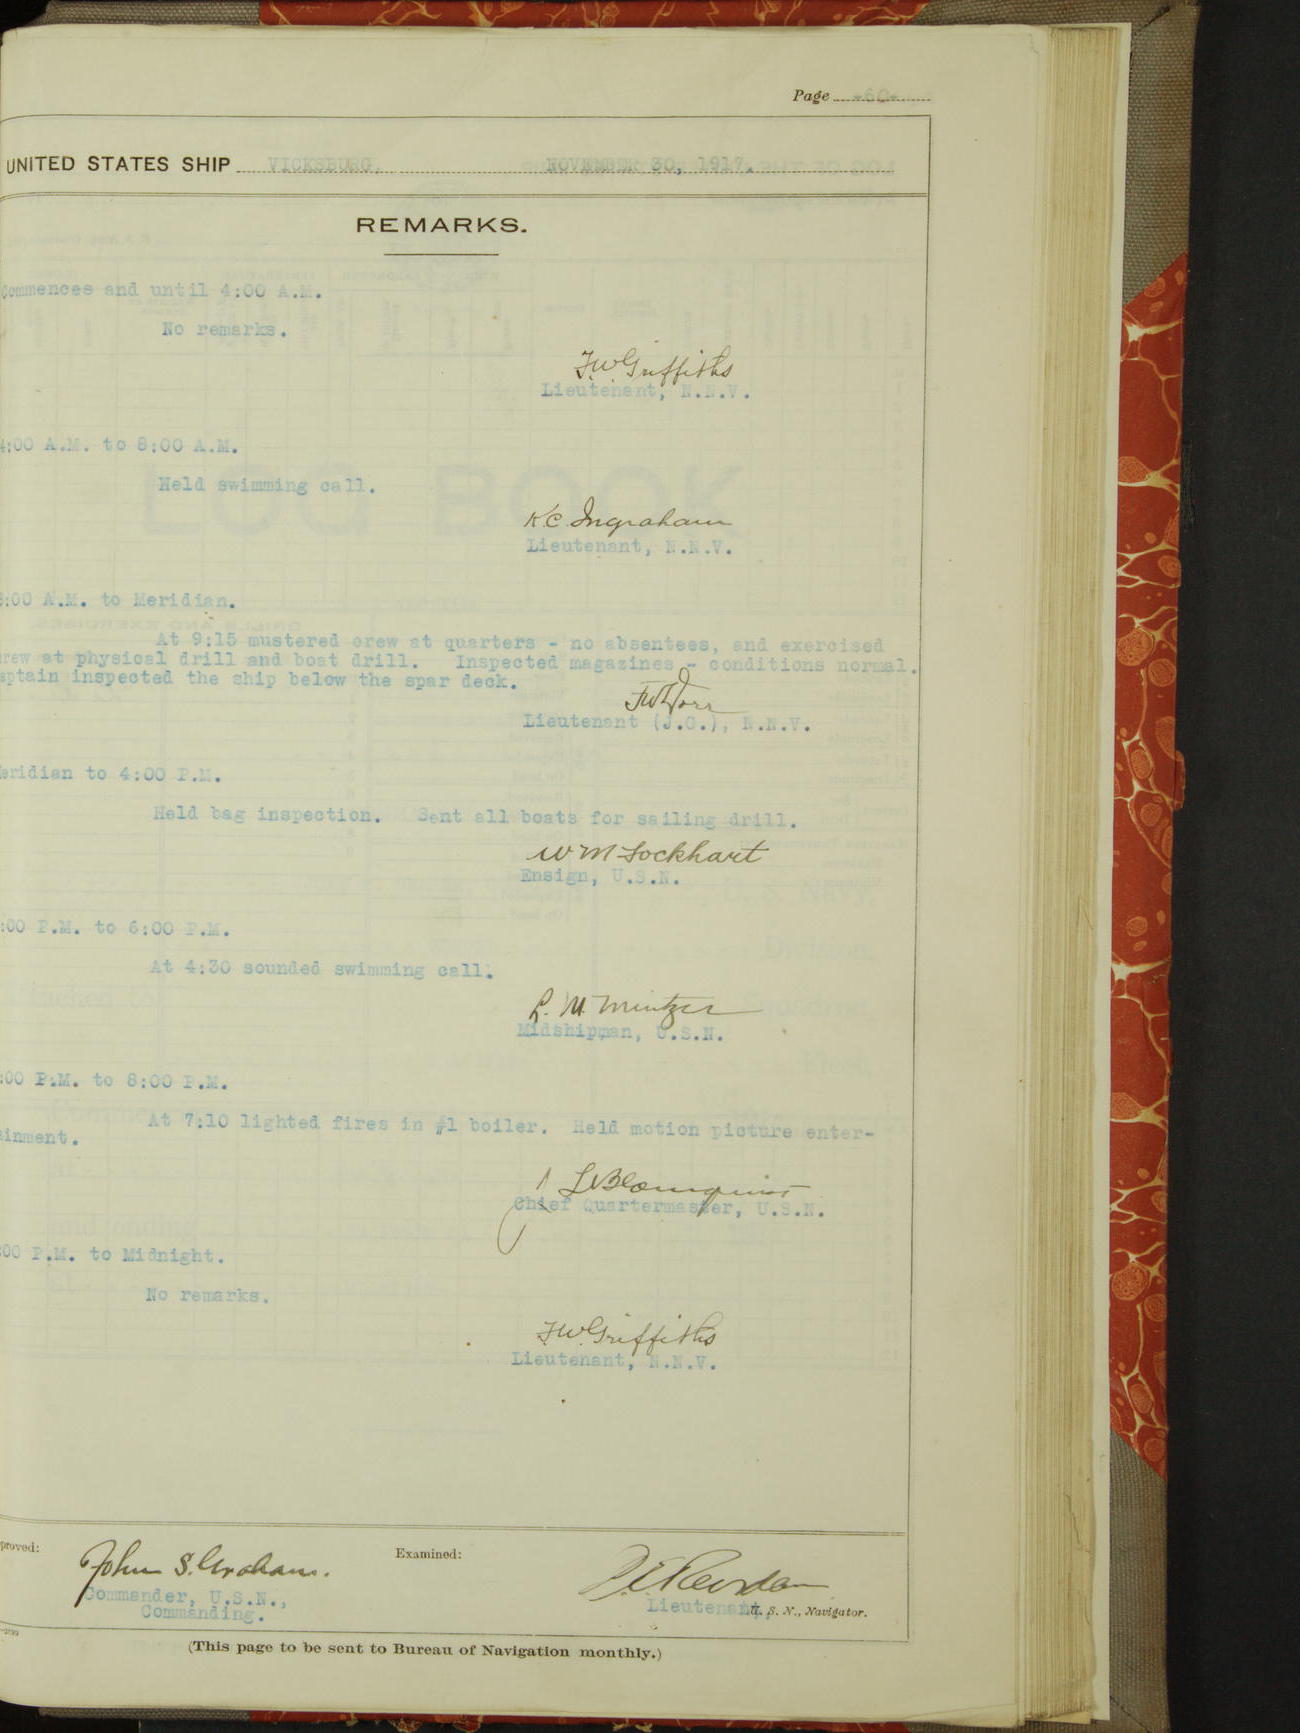 Page -60-
UNITED STATES SHIP VICKSBURG, NOVEMBER 30, 1917.
REMARKS.
Commences and until 4:00 A.M.
No remarks.
F.W. Griffiths
Lieutenant, N.N.V.
4:00 A.M. to 8:00 A.M.
Held swimming call.
K.C. Ingraham
Lieutenant, N.N.V.
8:00 A.M. to Meridian.
At 9:15 mustered crew at quarters - no absentees, and exercised
rew at physical drill and boat drill. Inspected magazines - conditions normal.
aptain inspected the ship below the spar deck.
Lieutenant (J.G.), N.N.V.
eridian to 4:00 P.M.
Held bag inspection. Sent all boats for sailing drill.
W M Lockhart
Ensign, U.S.N.
:00 P.M. to 6:00 P.M.
At 4:30 sounded swimming call.
L. M. Mintzer
Midshipman, U.S.N.
:00 P.M. to 8:00 P.M.
At 7:10 lighted fires in #1 boiler. Held motion picture enter-
ainment.
Blomquist
Chief Quartermaster, U.S.N.
:00 P.M. to Midnight.
No remarks.
F.W. Griffiths
Lieutenant, N.N.V.
proved:
John S. Graham.
Commander, U.S.N.,
Commanding.
Examined:
Lieutenant, U. S. N., Navigator.
(This page to be sent to Bureau of Navigation monthly.)